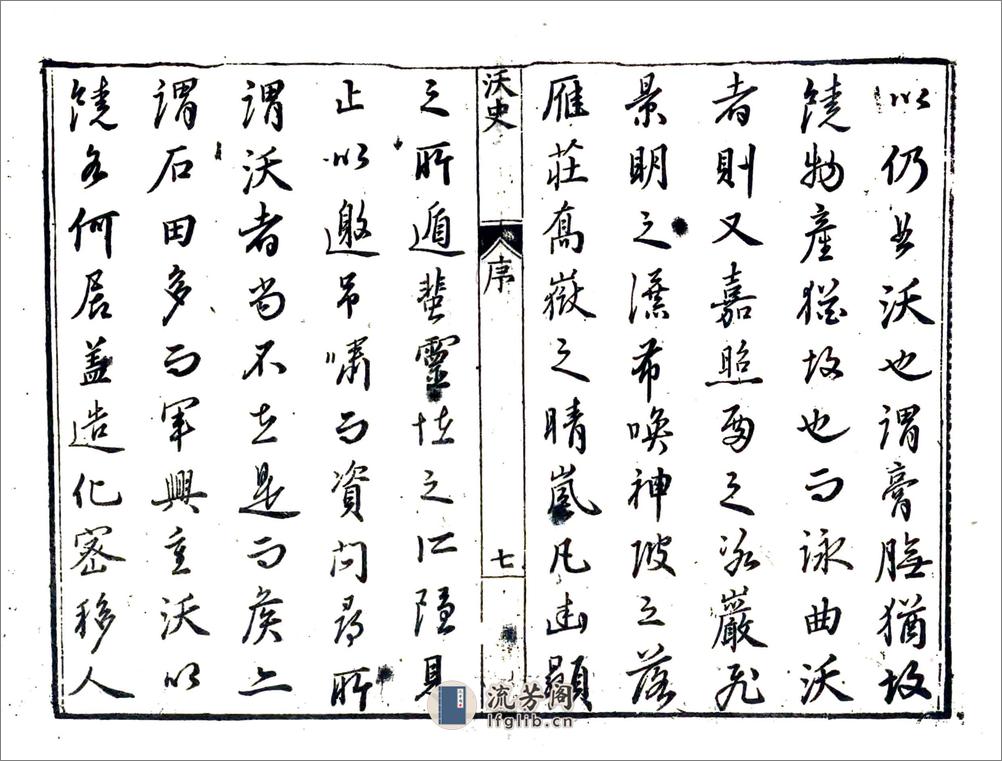 以仍是沃也謂膏腴猶故
饒物産猶故也而詠曲沃
者則又嘉照爾之冰巖飛
景明之瀑布喚神陂之落
雁莊喬嶽之晴嵐凡幽顯
沃史
序
七
之所遁蜚靈怪之所隱見
止以邀弔嘯而資問尋所
謂沃者尚不在是而侯之
謂石田多而軍興重沃以
饒名何居蓋造化密移人
流芳阁
lfglib.cn